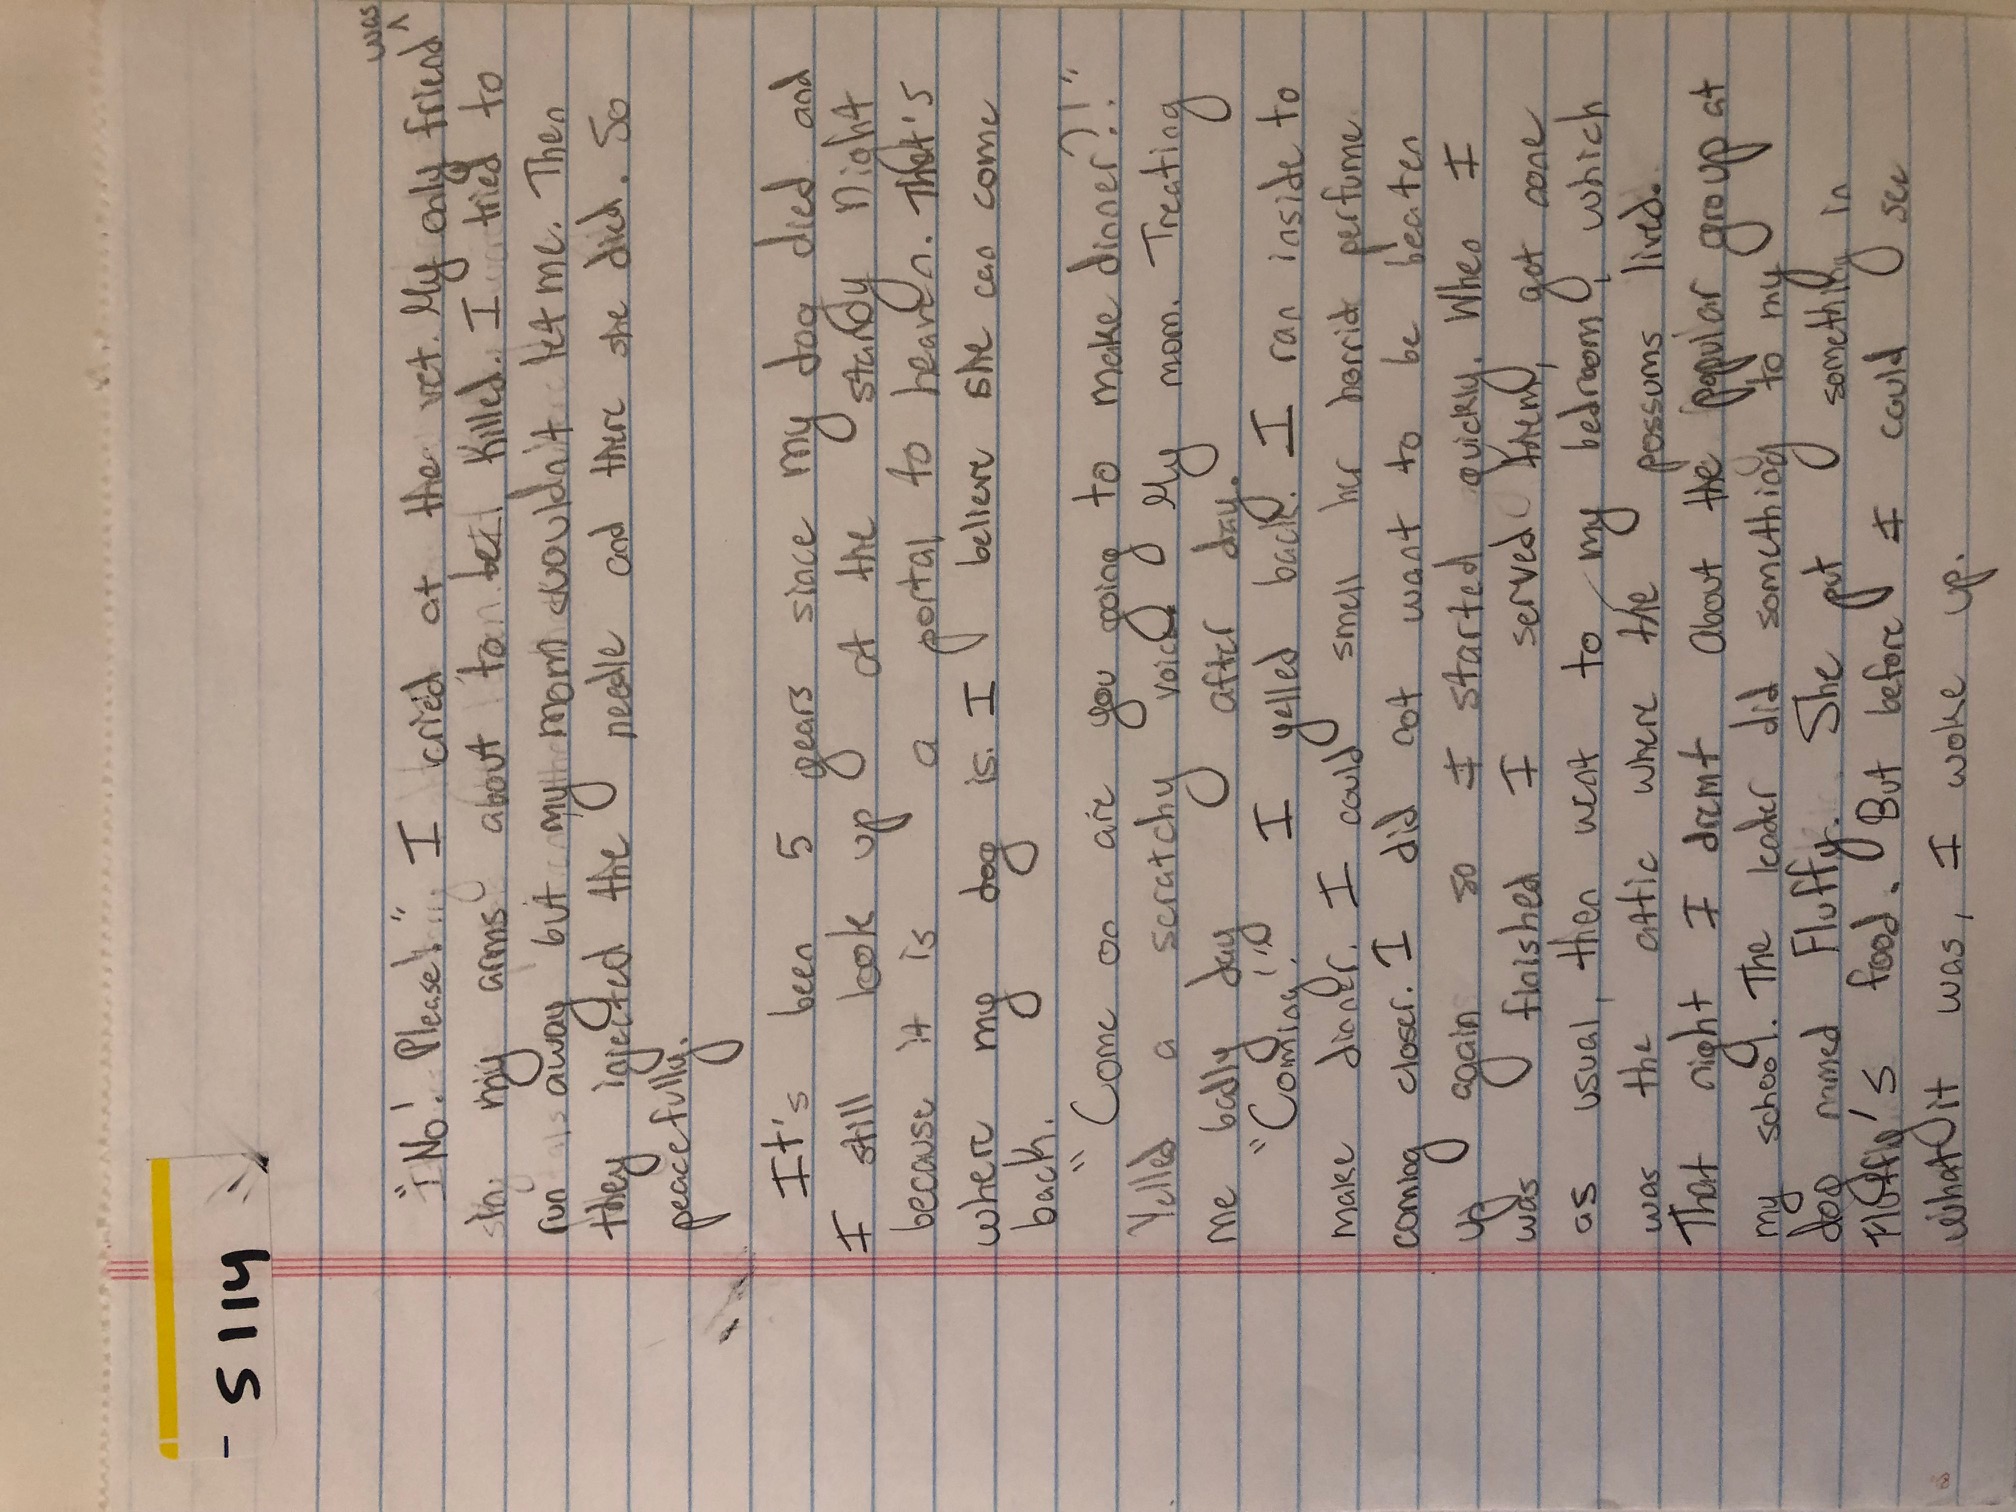 - 5114
was
"No! Please!" I cried at the vet. My only friend ^
in my arms about to be killed. I tried to
run away but my mom wouldn't let me. Then
they injected the needle and there she died. So
peacefully.
It's been 5 years since my dog died and
I still look up at the starry night
because it is a portal to heaven. That's
where my dog is. I believe she can come
back.
"Come on are you going to make dinner?!"
Yelled a scratchy voice. My mom. Treating
me badly day after day.
"Coming!" I yelled back. I ran inside to
make dinner. I could smell her horrid perfume
coming closer. I did not want to be beaten
up again so I started quickly. When I
was finished I served them, got none
as usual, then went to my bedroom, which
was the attic where the possums lived.
That night I dremt about the popular group at
my school. The leader did something to my
dog named Fluffy. She put something in
Fluffy's food. But before I could see
what it was, I woke up.